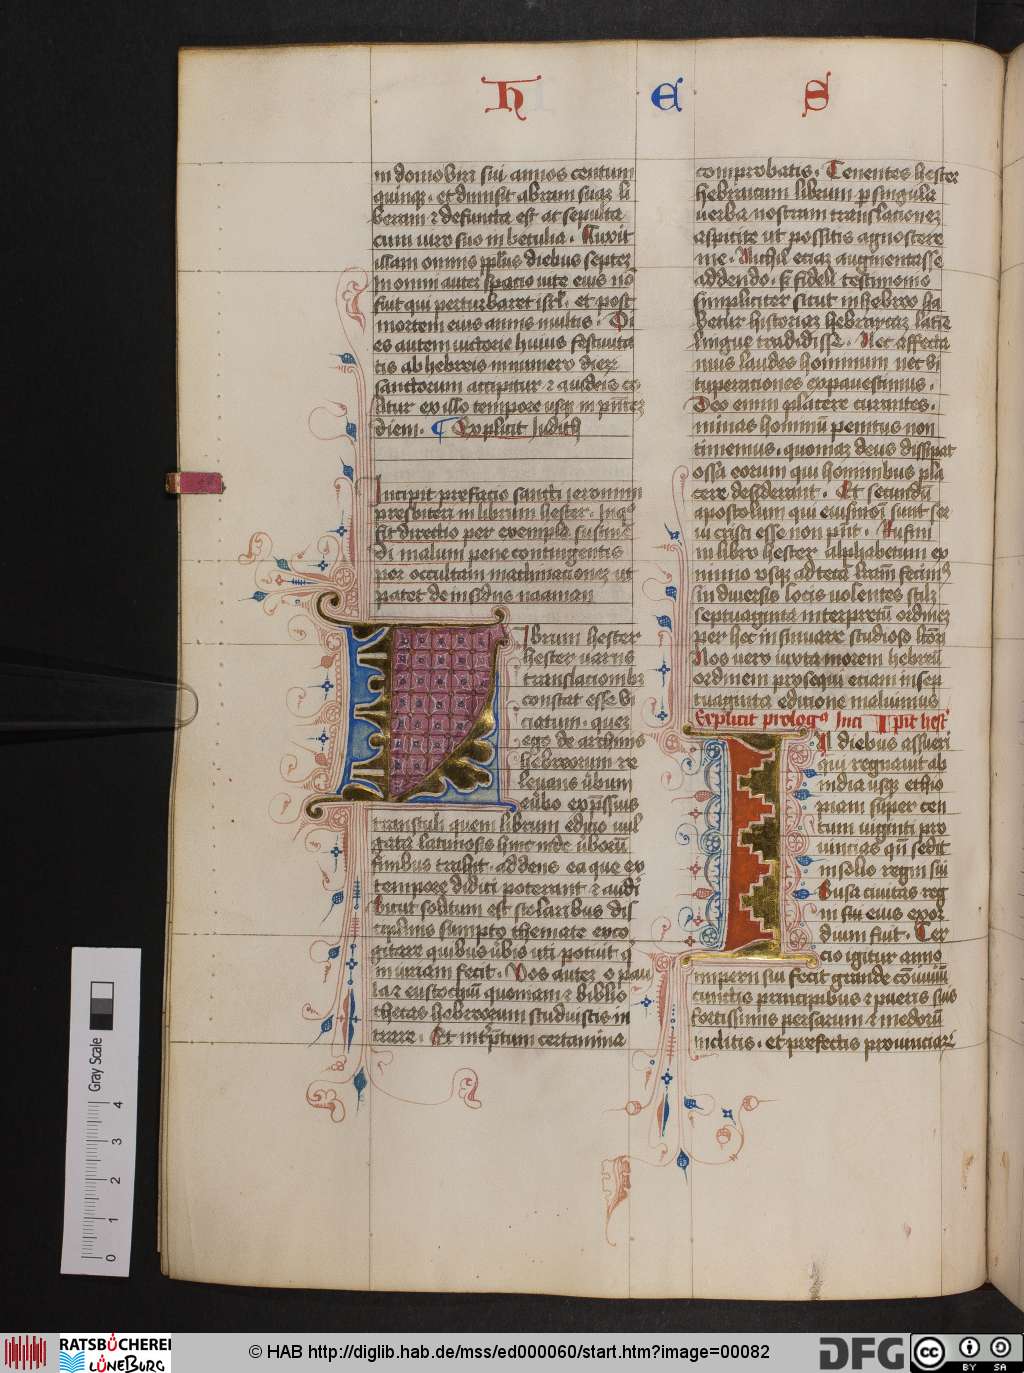 h E S
in domo viri sui annos centum
quinqꝫ · et dimisit abram suaꝫ li
beram ⁊ defuncta est ac sepulta
cum viro suo in betulia · Luxit
illam omnis pplus diebus septeꝫ
In omni auteꝫ spacio vite eius nō
fuit qui perturbaret isrl · et post
mortem eius annis multis · Di
es autem victorie huius festiuita
tis ab hebreis in numero dierꝝ
sanctorum accipitur ⁊
litur ex illo tempore usqꝫ in pn̄teꝫ
diem · Explicit Judith
Incipit prefacio sancti ieronimi
presbiteri in librum hester · In
fit directio per exempla
di malum pene contingentis
per occultam machinacioneꝫ ut
patet de insidiis naaman
Librum hester
hester variis
translacionibꝫ
constat esse vi
ciatum · queꝫ
ego de archiuis
hebreorum re
leuans ūbum
e ūbo exp̄ssius
transtuli quem librum edicio vul
gata latinosis hinc inde ūborū
finibus trahit · addens ea que ex
tempore didici poterant ⁊ audi
Sicut solitum est scolaribus dis
ciplinis sumpto themate exco
gitare quibus ūbis uti potuit q̄
iniuriam fecit · Vos auteꝫ o pau
la ⁊ eustochiū quoniam ⁊ biblio
thecas hebreorum studuistis in
trare · Et int̄p̄tum certamina
comprobatis · Tenentes hester
hebraicum librum p singula
verba nostram translacioneꝫ
aspicite ut possitis agnoscere
me · Nichil eciaꝫ augmentasse
addendo · s̄ fideli testimonio
simpliciter sicut in hebreo ha
betur historiaꝫ hebraicaꝫ latīe
lingue tradidisse · Nec affecta
mus laudes hominum nec vi
tuperationes expauescimus ·
Deo enim placere curantes ·
minas hominū penitus non
timemus · quoniaꝫ deus dissipat
ossa eorum qui hominibus pla
cere desiderant · Et secundū
apostolum qui eiusmōi sunt ser
ui cristi esse non pn̄t · Rufini
in libro hester alphabetum ex
minio vsqꝫ ad teta l̄ram fecimꝰ
in diuersis locis volentes scilꝫ
septuaginta interpretū ordineꝫ
per hec insinuare studioso l̄cōri
Nos vero iuxta morem hebreū
ordinem prosequi eciam in sep
tuaginta edicione maluimus
Explicit prologꝰ Inci pit hest̄
In diebus assueri
qui regnauit ab
india vsqꝫ ethio
piam super cen
tum viginti pro
uincias qn̄ sedit
in solio regni sui
Susa ciuitas reg
ni sui eius exor
dium fuit · Ter
cio igitur anno
imperii sui fecit grande cōuiuiū
cunctis principibus ⁊ pueris suis
fortissimis persarum ⁊ medorū
inclitis · et prefectis prouinciarꝫ
Gray Scale
0 1 2 3 4
RATSBÜCHEREI
LÜNEBURG
© HAB http://diglib.hab.de/mss/ed000060/start.htm?image=00082
DFG
cc BY SA